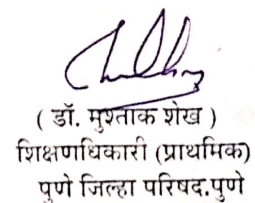 ( डॉ. मुश्ताक शेख )
शिक्षणधिकारी (प्राथमिक)
पुणे जिल्हा परिषद,पुणे